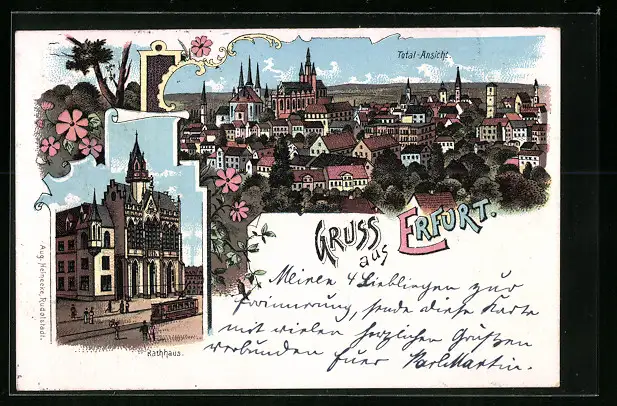 Total-Ansicht.
GRUSS
aus
ERFURT.
Meinen 4 Lieblingen zur
Erinnerung, sende diese Karte
mit vielen herzlichen Grüßen
verbunden Euer Karl Martin.
Rathhaus.
Aug. Heinecke, Rudolstadt.